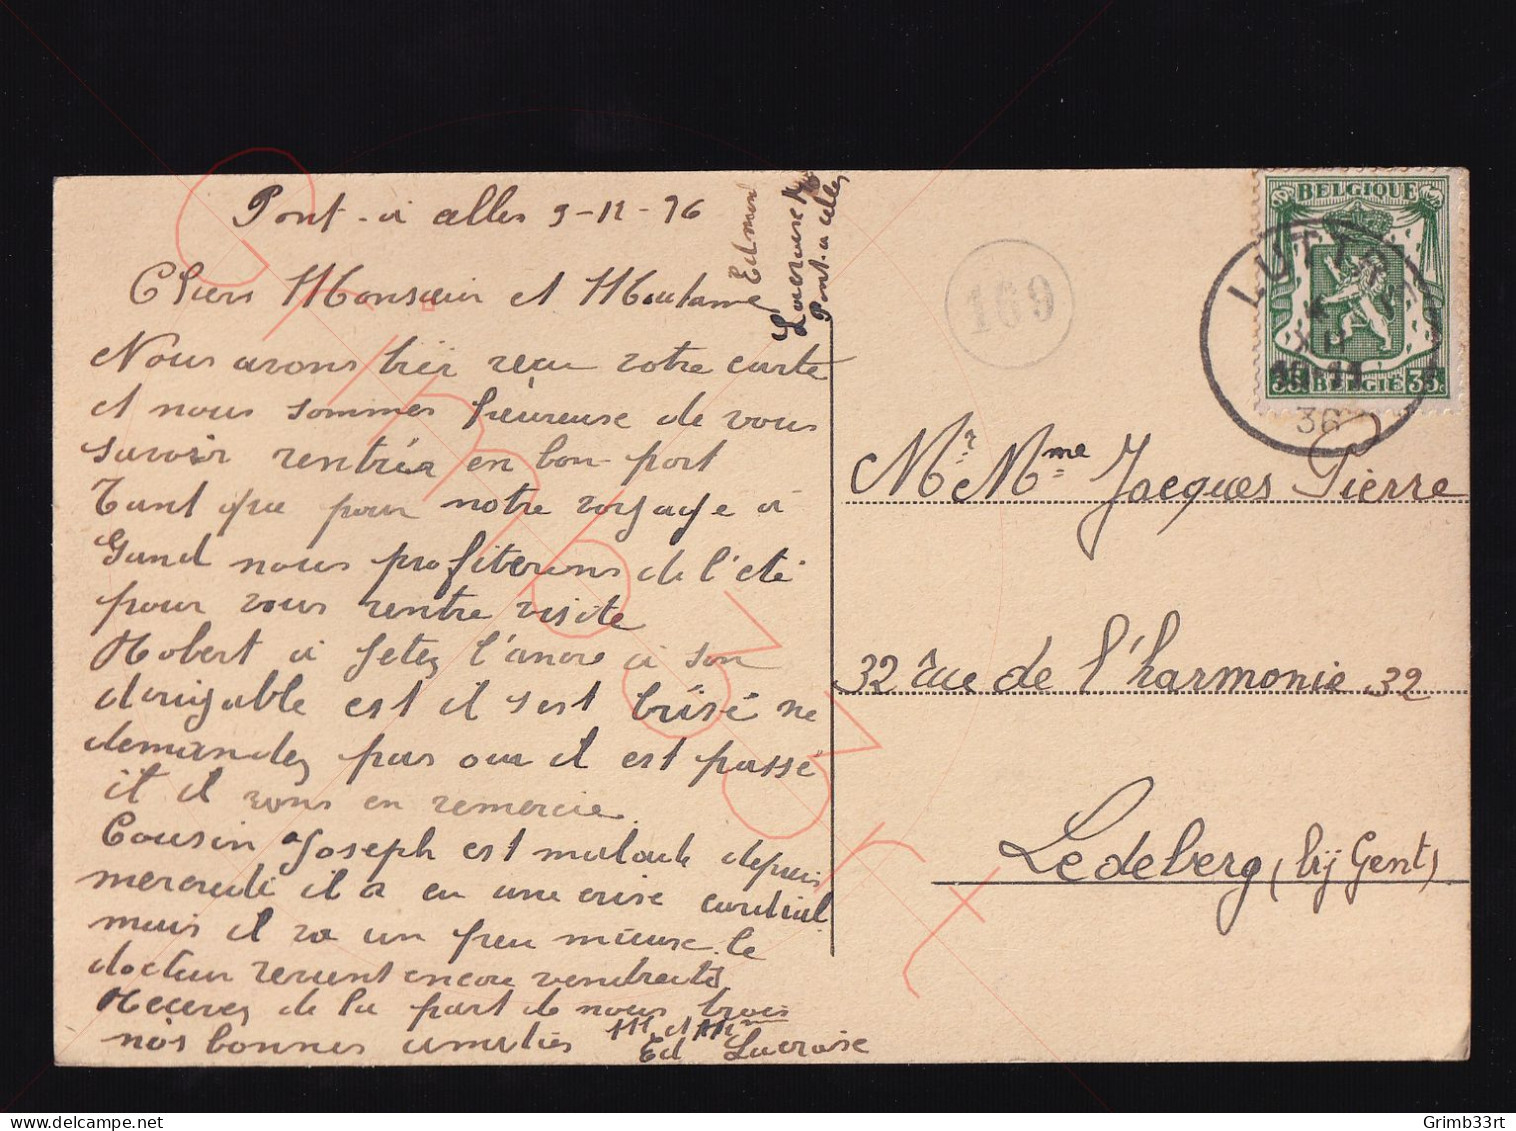 Pont-à celles 9-12-36
Chers Monsieur et Madame
Nous avons hier recu votre carte
et nous sommes heureuse de vous
savoir rentrés en bon port
Tant que pour notre voyage à
Gand nous profiterons de l'été
pour vous rentre visite
Robert à fetez l'ancre à son
est il s'est brisé ne
demandez pas ou il est passé
it il vous en remercie.
Cousin Joseph est malade depuis
mercredi il a eu une crise cardial
mais il va un peu mieux le
docteur revient encore vendredi
Recevez de la part de nous trois
nos bonnes amitiés M et Mme
Ed Lacroix
Edmond
Lacroix
Pont-à celles
169
BELGIQUE
35c BELGIË 35c
LUTTRE
36
Mr Mme Jacques Pierre
32 rue de l'harmonie 32
Ledeberg (bij Gent)
Grimb33rt
delcampe.net
Grimb33rt